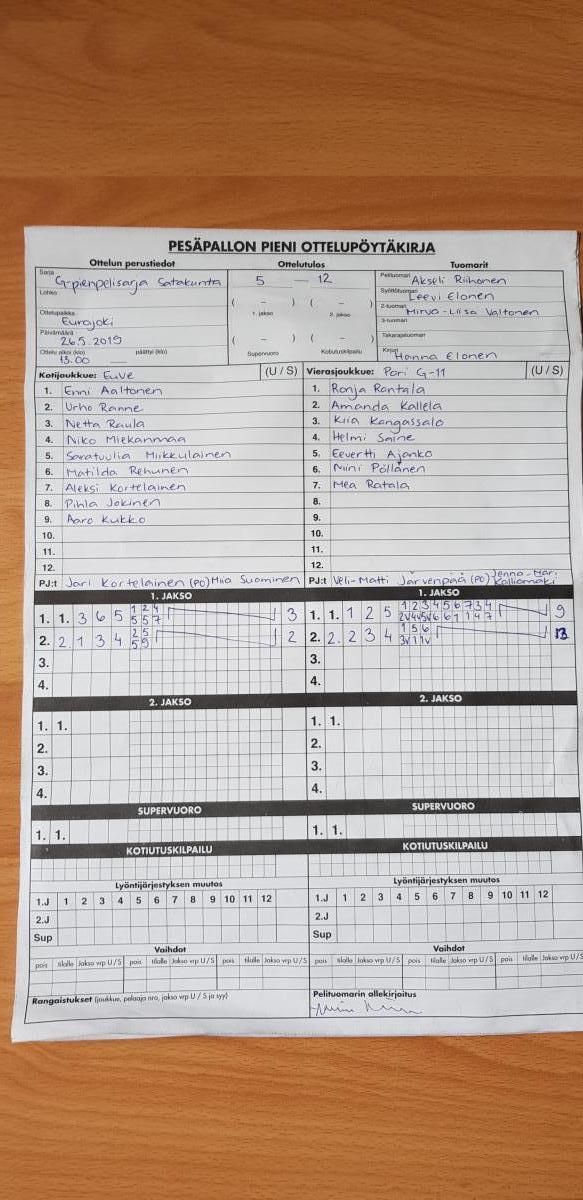 PESÄPALLON PIENI OTTELUPÖYTÄKIRJA
Ottelun perustiedot Ottelutulos Tuomarit
Sarja G-pienpelisarja Satakunta 5 — 12 Pelituomari Akseli Riihonen
Lohko Syöttötuomari Leevi Elonen
( – ) ( – ) 2-tuomari Mirva-Liisa Valtonen
Ottelupaikka Eurajoki 1. jakso 2. jakso 3-tuomari
Päivämäärä 26.5.2019 ( – ) ( – ) Takarajatuomari
Ottelu alkoi (klo) 13.00 päättyi (klo) Supervuoro Kotiutuskilpailu Kirjuri Hanna Elonen
Kotijoukkue: EuVe (U / S) Vierasjoukkue: Pori G-11 (U / S)
1. Enni Aaltonen 1. Ronja Rantala
2. Urho Ranne 2. Amanda Kallela
3. Netta Raula 3. Kiia Kangassalo
4. Niko Miekanmaa 4. Helmi Saine
5. Saratuulia Miikkulainen 5. Eevertti Ajanko
6. Matilda Rehunen 6. Mini Pöllänen
7. Aleksi Kortelainen 7. Mea Ratala
8. Pihla Jokinen 8.
9. Aaro Kukko 9.
10. 10.
11. 11.
12. 12.
PJ:t Jari Kortelainen (PO) Miia Suominen PJ:t Veli-Matti Järvenpää (PO) Jenna-Mari Kalliomäki
1. JAKSO 1. JAKSO
1. 1. 3 6 5 1 2 4 3 1. 1. 1 2 5 1 2 3 4 5 6 7 3 4 9
5 5 7
2. 2. 1 3 4 2 5 2 2. 2. 2 3 4 1 5 6
5 9 3V 1 1V
3. 3.
4. 4.
2. JAKSO 2. JAKSO
1. 1. 1. 1.
2. 2.
3. 3.
4. 4.
SUPERVUORO SUPERVUORO
1. 1. 1. 1.
KOTIUTUSKILPAILU KOTIUTUSKILPAILU
Lyöntijärjestyksen muutos Lyöntijärjestyksen muutos
1.J 1 2 3 4 5 6 7 8 9 10 11 12 1.J 1 2 3 4 5 6 7 8 9 10 11 12
2.J 2.J
Sup Sup
Vaihdot Vaihdot
pois tilalle Jakso vrp U / S pois tilalle Jakso vrp U / S pois tilalle Jakso vrp U / S pois tilalle Jakso vrp U / S pois tilalle Jakso vrp U / S pois tilalle Jakso vrp U / S
Rangaistukset (joukkue, pelaaja nro, jakso vrp U / S ja syy) Pelituomarin allekirjoitus